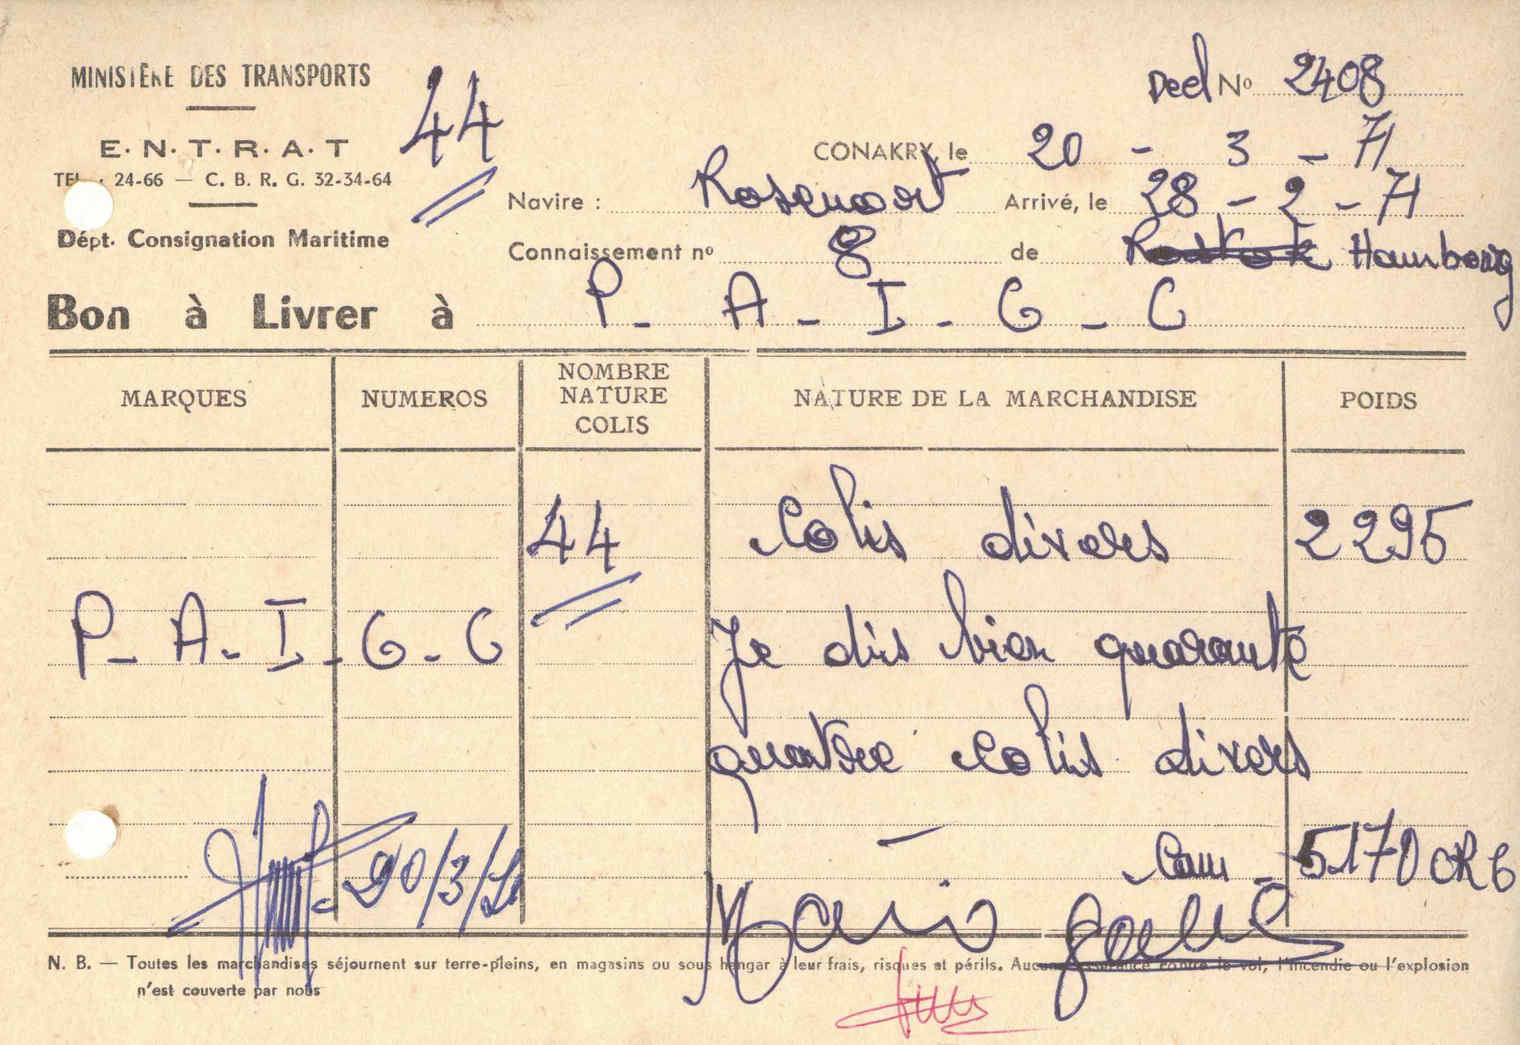 MINISTÈRE DES TRANSPORTS
E·N·T·R·A·T
TEL. : 24-66 — C. B. R. G. 32-34-64
Dépt. Consignation Maritime
44
Decl No 2408
CONAKRY, le 20 - 3 - 71
Navire : Rosenoort Arrivé, le 28 - 2 - 71
Connaissement no 8 de Rostok Hambourg
Bon à Livrer à P - A - I - G - C
MARQUES NUMEROS NOMBRE NATURE COLIS NATURE DE LA MARCHANDISE POIDS
44 Colis divers 2295
P - A - I - G - C Je dis bien quarante
quatre colis divers
20/3/71 Cam - 5170 CR6
N. B. — Toutes les marchandises séjournent sur terre-pleins, en magasins ou sous hangar à leur frais, risques et périls. Aucune assurance contre le vol, l'incendie ou l'explosion
n'est couverte par nous